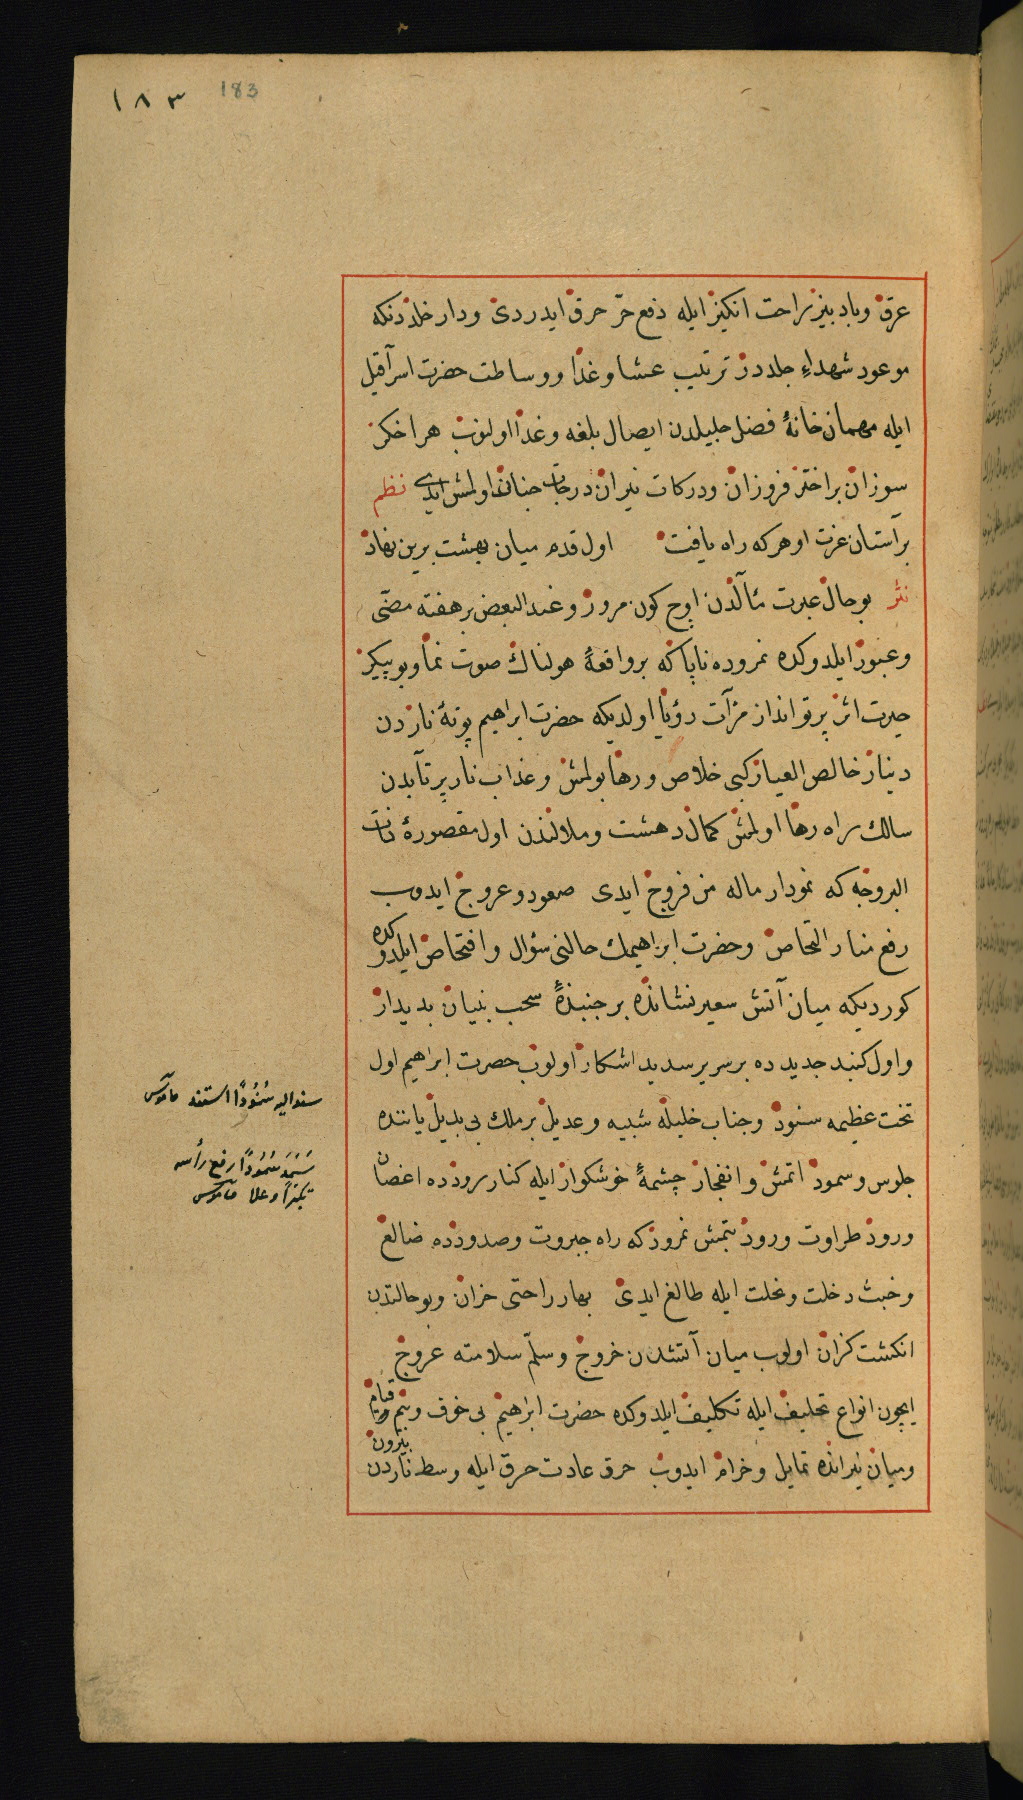 ١٨٣ 183
عرق وبادبیز راحت انكیز ایله دفع حرّ حرق ایدردی ودار خلددنكه
موعود شهداءِ جلددر ترتیب عشا وغدا ووساطت حضرت اسرآفیل
ایله مهمانخانهٔ فضل جلیلدن ایصال بلغه وغدا اولنوب هر اخكر
سوزان بر اختر فروزان ودركات نیران درجات جنان اولمش ایدی نظم
برآستان عزت او هركه راه یافت اول قدم میان بهشت برین نهاد
نثر بوحال عبرت مآلدن اوچ كون مرور وعند البعض بر هفته مضّی
وعبور ایلدوكده نمروده ناپاكه بر واقعهٔ هولناك صوت نما وبو پیكر
حیرت اثر پرتو انداز مرآت رؤیا اولدیكه حضرت ابراهیم بوتهٔ ناردن
دینار خالص العیار كبی خلاص ورها بولمش وعذاب نار پرتآبدن
سالك راه رها اولمش كمال دهشت وملالندن اول مقصورهٔ ذات
البروجه كه نمودار ماله من فروج ایدی صعود وعروج ایدوب
رفع منار التحاص وحضرت ابراهیمك حالنی سؤال وافتحاص ایلدوكده
كوردیكه میان آتش سعیر نشانده بر جنبذهٔ سحب بنیان بدیدار
واول كنبد جدیدده بر سریر سدید اشكار اولوب حضرت ابراهیم اول
تخت عظیمه سنود وجناب خلیله شبیه وعدیل بر ملك بی بدیل یاننده
جلوس وسمود اتمش وانفجار چشمهٔ خوشكوار ایله كنار رودده اغصان
ورود طراوت ورود بتمش نمرود كه راه جبروت وصدودده ضالع
وخبث دخلت ونحلت ایله طالع ایدی بهار راحتی خزان وبوحالتدن
انكشت كزان اولوب میان آتشدن خروج وسلّم سلامته عروج
ایچون انواع تحلیف ایله تكلیف ایلدوكده حضرت ابراهیم بی خوف وبیم قیام
ومیان نیرانده تمایل وخرام ایدوب خرق عادت حرق ایله وسط ناردن بیرون
سند الیه سُنُودًا استند قاموس
سَمَدَ سُمُودًا رفع رأسه
تكبّرًا وعلا قاموس